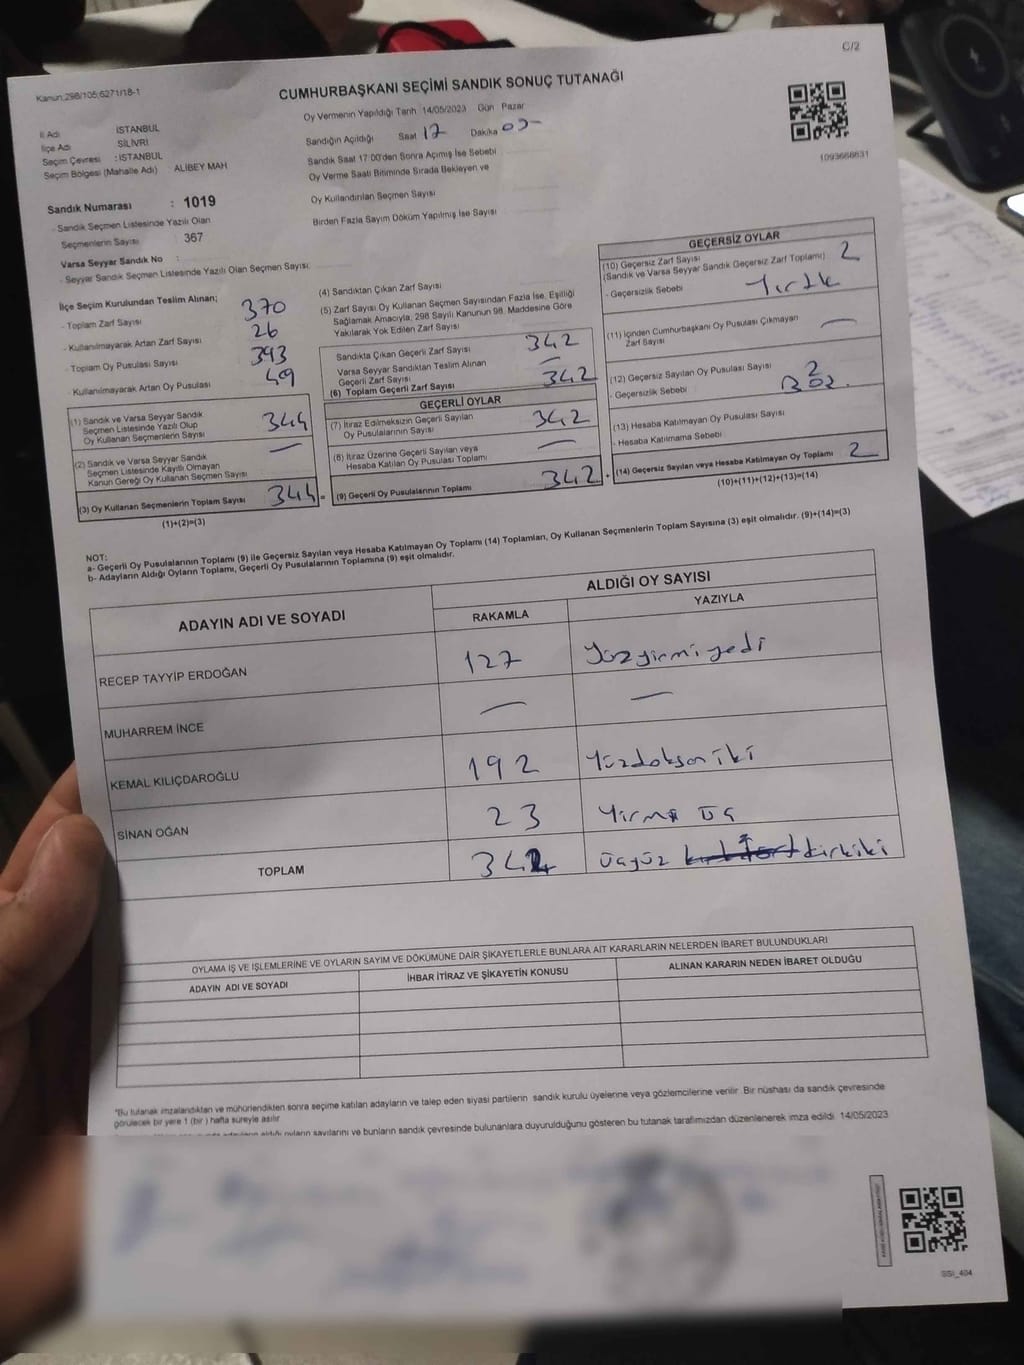 C/2
Kanun:298/105;6271/18-1
CUMHURBAŞKANI SEÇİMİ SANDIK SONUÇ TUTANAĞI
İl Adı İSTANBUL
İlçe Adı SİLİVRİ
Seçim Çevresi : İSTANBUL
Seçim Bölgesi (Mahalle Adı) ALİBEY MAH
Oy Vermenin Yapıldığı Tarih 14/05/2023 Gün Pazar
Sandığın Açıldığı Saat 17 Dakika 05
Sandık Saat 17:00'den Sonra Açımış İse Sebebi
Oy Verme Saati Bitiminde Sırada Bekleyen ve
Oy Kullandırılan Seçmen Sayısı
Birden Fazla Sayım Döküm Yapılmış İse Sayısı
1093666631
Sandık Numarası : 1019
- Sandık Seçmen Listesinde Yazılı Olan
Seçmenlerin Sayısı : 367
Varsa Seyyar Sandık No :
- Seyyar Sandık Seçmen Listesinde Yazılı Olan Seçmen Sayısı:
İlçe Seçim Kurulundan Teslim Alınan;
- Toplam Zarf Sayısı 370
- Kullanılmayarak Artan Zarf Sayısı 26
- Toplam Oy Pusulası Sayısı 393
Kullanılmayarak Artan Oy Pusulası 49
(1) Sandık ve Varsa Seyyar Sandık
Seçmen Listesinde Yazılı Olup
Oy Kullanan Seçmenlerin Sayısı 344
(2) Sandık ve Varsa Seyyar Sandık
Seçmen Listesinde Kayıtlı Olmayan
Kanun Gereği Oy Kullanan Seçmen Sayısı —
(3) Oy Kullanan Seçmenlerin Toplam Sayısı 344 =
(1)+(2)=(3)
(4) Sandıktan Çıkan Zarf Sayısı
(5) Zarf Sayısı Oy Kullanan Seçmen Sayısından Fazla İse, Eşitliği
Sağlamak Amacıyla, 298 Sayılı Kanunun 98. Maddesine Göre
Yakılarak Yok Edilen Zarf Sayısı
Sandıkta Çıkan Geçerli Zarf Sayısı 342
Varsa Seyyar Sandıktan Teslim Alınan
Geçerli Zarf Sayısı —
(6) Toplam Geçerli Zarf Sayısı 342
GEÇERLİ OYLAR
(7) İtiraz Edilmeksizin Geçerli Sayılan
Oy Pusulalarının Sayısı 342
(8) İtiraz Üzerine Geçerli Sayılan veya
Hesaba Katılan Oy Pusulası Toplamı —
(9) Geçerli Oy Pusulalarının Toplamı 342 +
GEÇERSİZ OYLAR
(10) Geçersiz Zarf Sayısı 2
(Sandık ve Varsa Seyyar Sandık Geçersiz Zarf Toplamı)
- Geçersizlik Sebebi Yırtık
(11) İçinden Cumhurbaşkanı Oy Pusulası Çıkmayan
Zarf Sayısı —
(12) Geçersiz Sayılan Oy Pusulası Sayısı 2
- Geçersizlik Sebebi
(13) Hesaba Katılmayan Oy Pusulası Sayısı
- Hesaba Katılmama Sebebi
(14) Geçersiz Sayılan veya Hesaba Katılmayan Oy Toplamı 2
(10)+(11)+(12)+(13)=(14)
NOT:
a- Geçerli Oy Pusulalarının Toplamı (9) ile Geçersiz Sayılan veya Hesaba Katılmayan Oy Toplamı (14) Toplamları, Oy Kullanan Seçmenlerin Toplam Sayısına (3) eşit olmalıdır. (9)+(14)=(3)
b- Adayların Aldığı Oyların Toplamı, Geçerli Oy Pusulalarının Toplamına (9) eşit olmalıdır.
ADAYIN ADI VE SOYADI
ALDIĞI OY SAYISI
RAKAMLA YAZIYLA
RECEP TAYYİP ERDOĞAN 127 Yüzyirmiyedi
MUHARREM İNCE — —
KEMAL KILIÇDAROĞLU 192 Yüzdoksaniki
SİNAN OĞAN 23 Yirmi üç
TOPLAM 342 üçyüz kırkiki
OYLAMA İŞ VE İŞLEMLERİNE VE OYLARIN SAYIM VE DÖKÜMÜNE DAİR ŞİKAYETLERLE BUNLARA AİT KARARLARIN NELERDEN İBARET BULUNDUKLARI
ADAYIN ADI VE SOYADI İHBAR İTİRAZ VE ŞİKAYETİN KONUSU ALINAN KARARIN NEDEN İBARET OLDUĞU
*Bu tutanak imzalandıktan ve mühürlendikten sonra seçime katılan adayların ve talep eden siyasi partilerin sandık kurulu üyelerine veya gözlemcilerine verilir. Bir nüshası da sandık çevresinde
görülecek bir yere 1 (bir ) hafta süreyle asılır.
aldığı oyların sayılarını ve bunların sandık çevresinde bulunanlara duyurulduğunu gösteren bu tutanak tarafımızdan düzenlenerek imza edildi. 14/05/2023
SSI_404